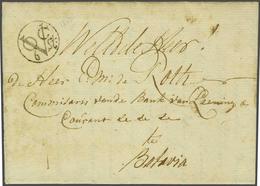 WelEd. Heer
de Heer de Roth
Commisaris vande Bank van Leening
Courant &c &c &c
te
Batavia